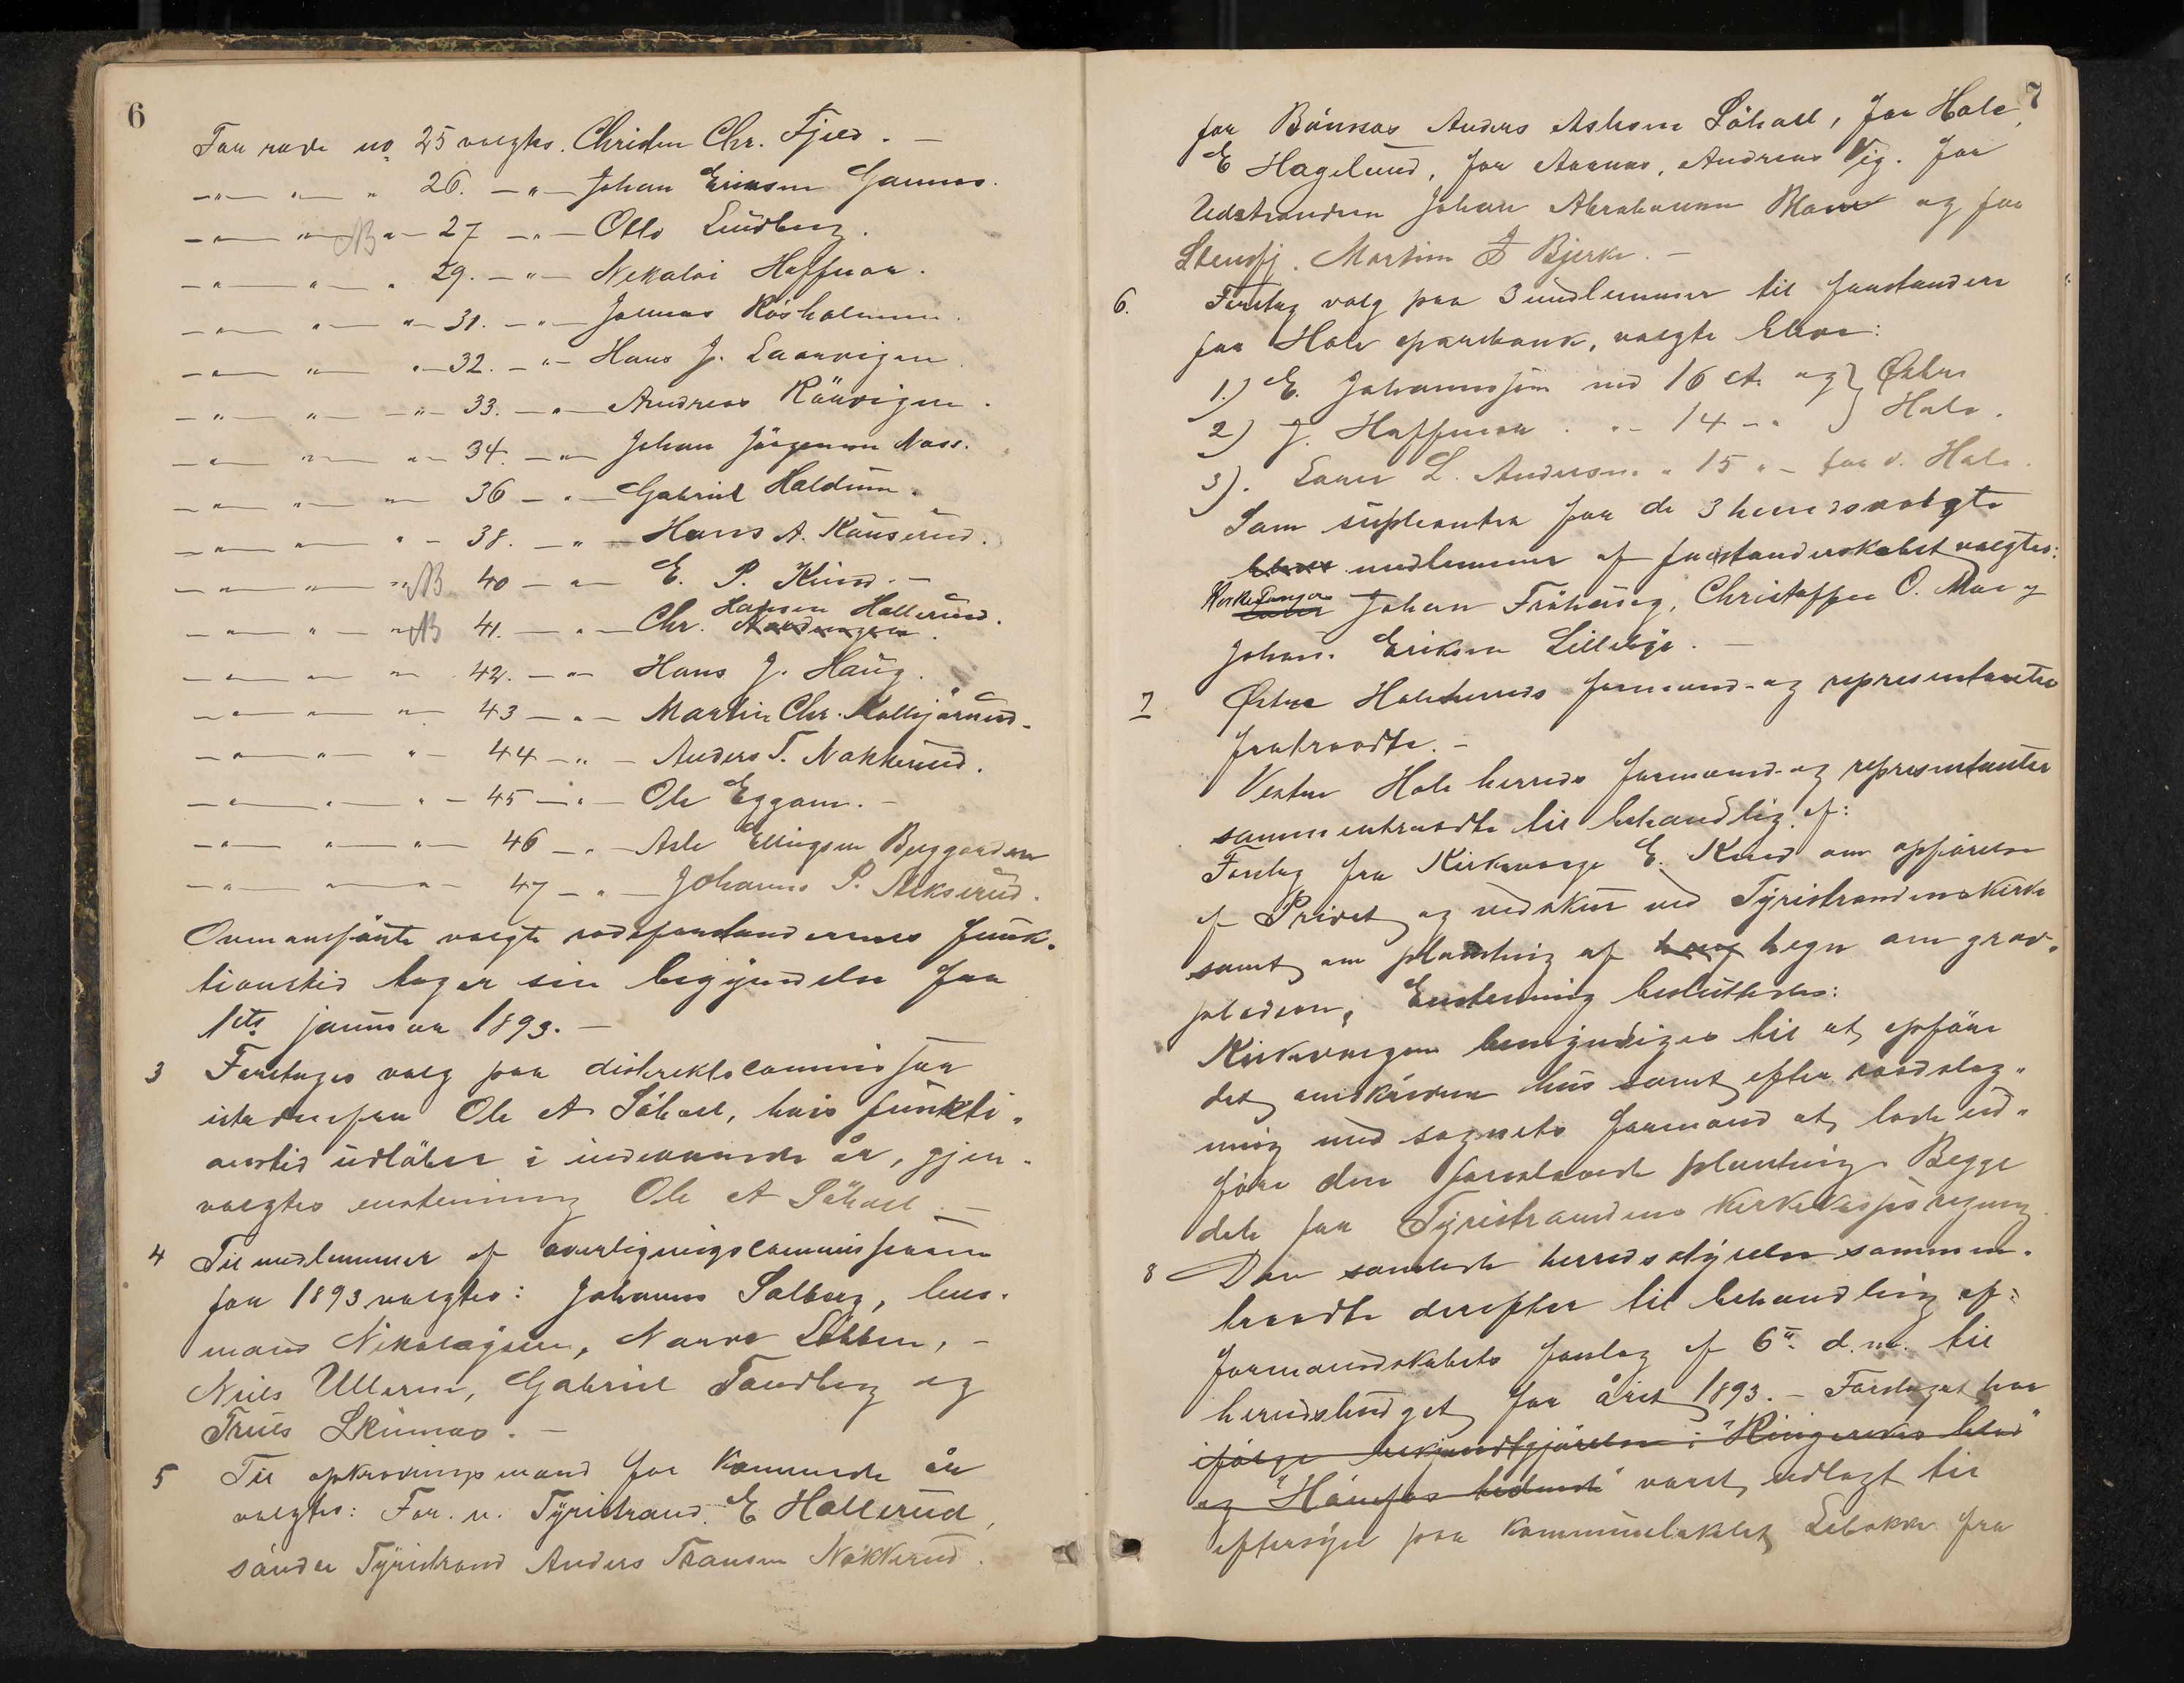 6
For rode no 25 valgtes. Christen Chr. Fjeld. –
–"– "– " 26. –"– Johan Eriksen Gannes.
–"– "– NB "– 27 –"– Otto Lundberg.
–"– "– " 29. –"– Nekolai Haffnor.
–"– "– "– 31. –"– Johnas Rösholmen.
–"– "– "– 32. –"– Hans J. Laarvigen.
–"– "– –"– 33. –"– Andreas Räärvigen.
–"– "– "– 34. –"– Johan Jörgensen Næss.
–"– "– "– 36 –"– Gabriel Haldum.
–"– "– "– 38. –"– Hans A. Kauserud.
–"– "– "– NB 40 –"– E. P. Kind. –
–"– "– "– NB 41. –"– Chr. Hansen Hallerud.
–"– "– "– 42. –"– Hans J. Haug.
–"– "– "– 43 –"– Martin Chr. Mallbjörnrud.
–"– "– "– 44 –"– Anders T. Nakkerud.
–"– "– "– 45 –"– Ole Eggam. –
–"– "– "– 46 –"– Asle Ellingsen Berggarden
–"– "– "– 47 –"– Johannes P. Aekserud.
Ovenanførte valgte rodeforstanderes funk-
tionstid tager sin begyndelse fra
1ste januar 1893. –
3 Foretages valg paa distriktscommissær
istedenfor Ole A Söhoel, hvis funkti-
onstid udløber i indeværende år, gjen-
valgtes enstemmig Ole A Söhoel. –
4 Til medlemmer af overligningscommissionen
for 1893 valgtes: Johannes Solberg, lens-
mand Nikolaysen, Narve Löbben, –
Niels Ullern, Gabriel Tandberg og
Truls Skinnes. –
5 Til opkrævningsmand for kommende år
valgtes: For n. Tyristrand. E Hallerud,
søndre Tyristrand Anders Transen Nökkerud.
7
for Bönsnes Anders Aslesen Söhoel, for Hole,
E Hagelund, for Aasnes, Andreas Vig. for
Udstranden Johan Abrahamsen og for
Stensfj. Martin J Bjerke. –
6. Foretag valg paa 3 medlemmer til forstandere
for Hole sparebank, valgte bleve:
1.) E. Johannessen med 16 st. og } Østre
2) J. Haffnor " – 14 – " } Hole.
3). Laurs L. Andersen " 15 " – for v. Hole.
Som supleanter for de 3 herredsvalgte
medlemmer af forstanderskabet valgtes:
Kirkesanger Johan Fröhaug, Christopher O. Moe og
Johan Eriksen Lillebye. –
7 Østre Hole herreds formand- og representanter
fratraadte. –
Vestre Hole herreds formand- og representanter
sammentraadte til behandling af:
Forslag fra Kirkeværge E. Kind om opførelse
af Privet og vedskur ved Tyristrandens kirke
samt om plantning af hegn om grav-
pladsen. Enstemmig besluttedes:
Kirkeværgen bemyndiges til at opføre
det omskrevne hus samt efter raadslag-
ning med sognets formand at lade ud-
føre den foreslaaede plantning. Begge
dele for Tyristrandens kirkekasses regning.
8 Den samlede herredsstyrelse sammen-
traadte derefter til behandling af:
formandskabets forslag af 6te d.m. til
herredsbudget for året 1893. – Forslaget har
ifølge bekjendtgjørelse i "Ringerikes blad"
og "Hønefos tidende" været udlagt til
eftersyn paa kommunelokalet Libakke fra